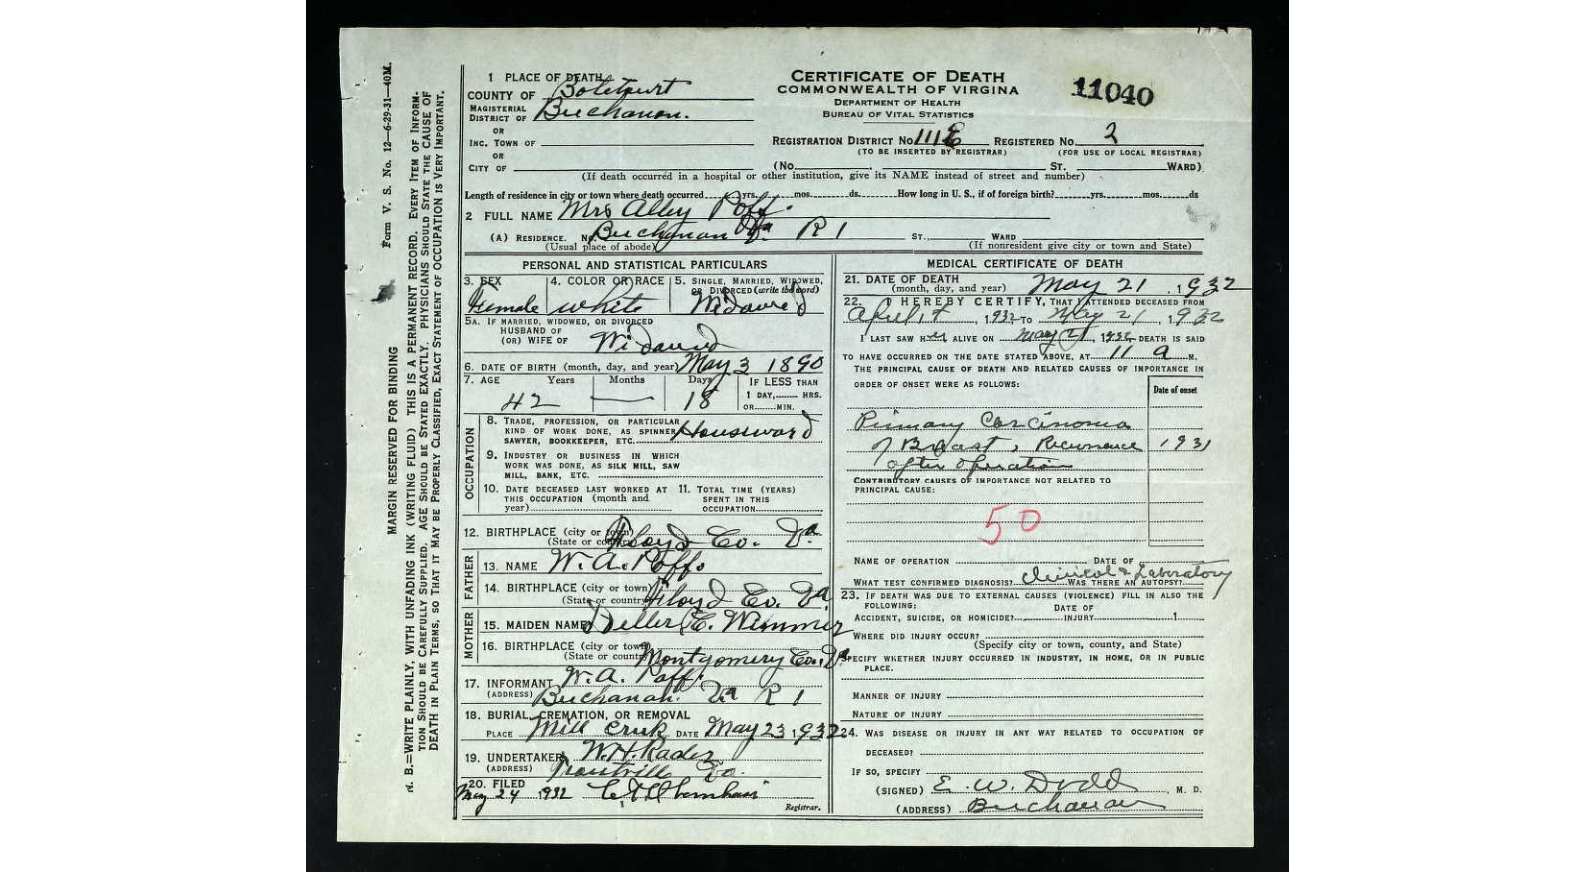 Form V. S. No. 12—6-29-31—40M.
MARGIN RESERVED FOR BINDING
N. B.—WRITE PLAINLY, WITH UNFADING INK (WRITING FLUID) THIS IS A PERMANENT RECORD. EVERY ITEM OF INFORM-
TION SHOULD BE CAREFULLY SUPPLIED. AGE SHOULD BE STATED EXACTLY. PHYSICIANS SHOULD STATE THE CAUSE OF
DEATH IN PLAIN TERMS, SO THAT IT MAY BE PROPERLY CLASSIFIED. EXACT STATEMENT OF OCCUPATION IS VERY IMPORTANT.
CERTIFICATE OF DEATH
COMMONWEALTH OF VIRGINIA
DEPARTMENT OF HEALTH
BUREAU OF VITAL STATISTICS
11040
1 PLACE OF DEATH
COUNTY OF Botetourt
MAGISTERIAL DISTRICT OF Buchanan.
OR
INC. TOWN OF
OR
CITY OF
REGISTRATION DISTRICT No. 111E REGISTERED No. 2
(TO BE INSERTED BY REGISTRAR) (FOR USE OF LOCAL REGISTRAR)
(No. ST. WARD)
(If death occurred in a hospital or other institution, give its NAME instead of street and number)
Length of residence in city or town where death occurred yrs. mos. ds. How long in U. S., if of foreign birth? yrs. mos. ds
2 FULL NAME Mrs Alley Poff.
(A) RESIDENCE. No. Buchanan Va R 1 ST. WARD
(Usual place of abode) (If nonresident give city or town and State)
PERSONAL AND STATISTICAL PARTICULARS
3. SEX 4. COLOR OR RACE 5. SINGLE, MARRIED, WIDOWED, OR DIVORCED (write the word)
Female white Widowed
5A. IF MARRIED, WIDOWED, OR DIVORCED
HUSBAND OF
(OR) WIFE OF Widowed
6. DATE OF BIRTH (month, day, and year) May 3 1890
7. AGE Years Months Days IF LESS THAN
1 DAY, HRS.
OR MIN.
42 — 18
OCCUPATION
8. TRADE, PROFESSION, OR PARTICULAR
KIND OF WORK DONE, AS SPINNER,
SAWYER, BOOKKEEPER, ETC. Houseward
9. INDUSTRY OR BUSINESS IN WHICH
WORK WAS DONE, AS SILK MILL, SAW
MILL, BANK, ETC.
10. DATE DECEASED LAST WORKED AT THIS OCCUPATION (month and year) 11. TOTAL TIME (YEARS) SPENT IN THIS OCCUPATION
12. BIRTHPLACE (city or town)
(State or country) Floyd Co. Va
FATHER
13. NAME W. A. Poff.
14. BIRTHPLACE (city or town)
(State or country) Floyd Co. Va
MOTHER
15. MAIDEN NAME Deller E. Wimmer
16. BIRTHPLACE (city or town)
(State or country) Montgomery Co. Va
17. INFORMANT W. A. Poff.
(ADDRESS) Buchanan. Va R 1
18. BURIAL, CREMATION, OR REMOVAL
PLACE Mill Creek DATE May 23 1932
19. UNDERTAKER W. H. Rader
(ADDRESS) Troutville Va.
20. FILED
May 24 1932
Registrar.
MEDICAL CERTIFICATE OF DEATH
21. DATE OF DEATH
(month, day, and year) May 21 . 1932
22. I HEREBY CERTIFY, THAT I ATTENDED DECEASED FROM
April 1st , 1932 TO May 21 , 1932
I LAST SAW HER ALIVE ON May 21, 1932 DEATH IS SAID
TO HAVE OCCURRED ON THE DATE STATED ABOVE, AT 11 a M.
THE PRINCIPAL CAUSE OF DEATH AND RELATED CAUSES OF IMPORTANCE IN
ORDER OF ONSET WERE AS FOLLOWS: Date of onset
Primary Carcinoma
of Breast, Recurrence 1931
after operation
CONTRIBUTORY CAUSES OF IMPORTANCE NOT RELATED TO
PRINCIPAL CAUSE:
50
NAME OF OPERATION DATE OF
WHAT TEST CONFIRMED DIAGNOSIS? Clinical & Laboratory WAS THERE AN AUTOPSY?
23. IF DEATH WAS DUE TO EXTERNAL CAUSES (VIOLENCE) FILL IN ALSO THE
FOLLOWING:
ACCIDENT, SUICIDE, OR HOMICIDE? DATE OF INJURY 1
WHERE DID INJURY OCCUR?
(Specify city or town, county, and State)
SPECIFY WHETHER INJURY OCCURRED IN INDUSTRY, IN HOME, OR IN PUBLIC
PLACE.
MANNER OF INJURY
NATURE OF INJURY
24. WAS DISEASE OR INJURY IN ANY WAY RELATED TO OCCUPATION OF
DECEASED?
IF SO, SPECIFY
(SIGNED) E. W. Dodd , M. D.
(ADDRESS) Buchanan